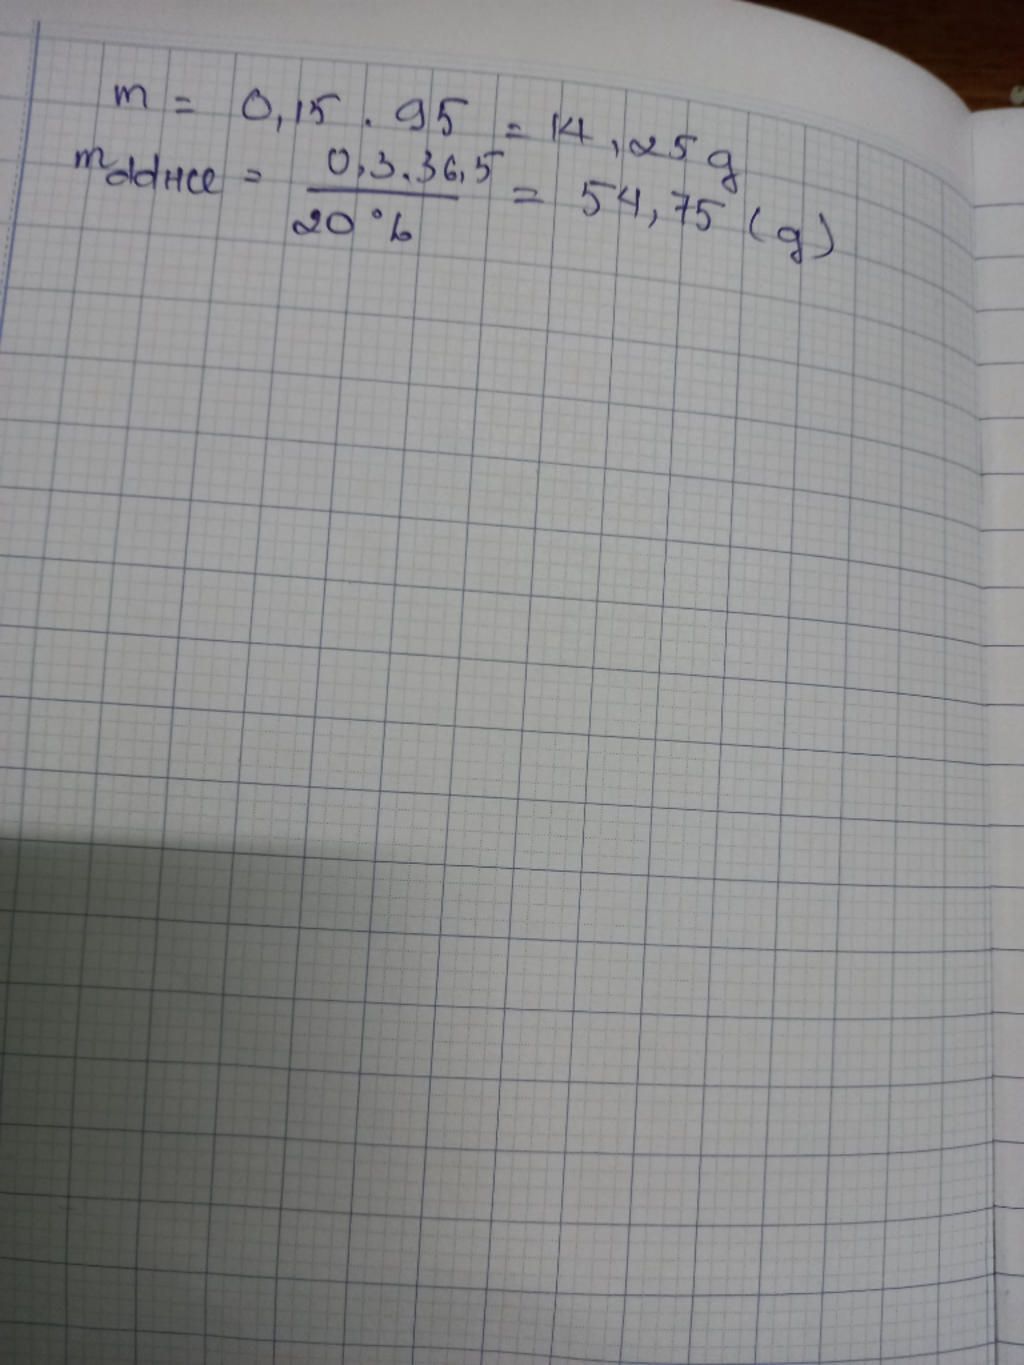 m = 0,15 . 95 = 14,25 g
mddHCl = 0,3.36,5 / 20% = 54,75 (g)